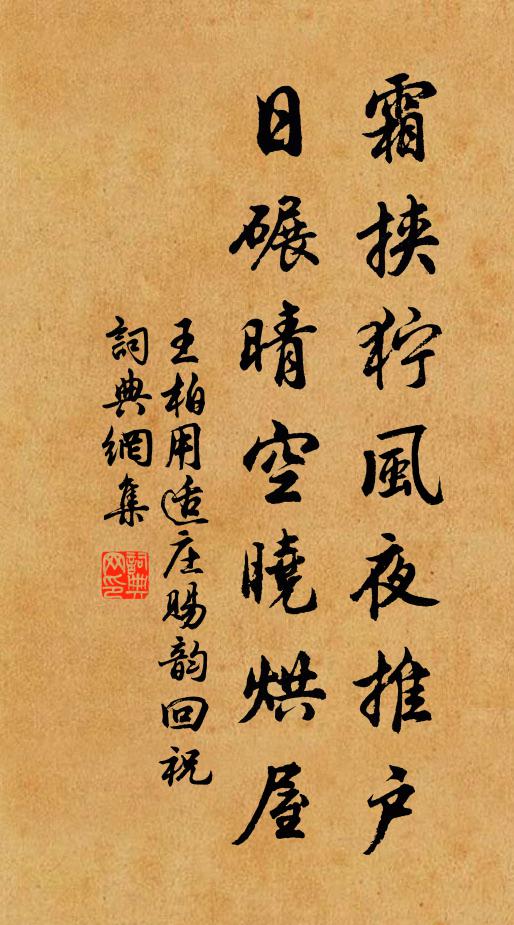 霜挟狞風夜推户
日碾晴空曉烘屋
王柏用适庄賜韵回祝
詞典網集
詞典网印